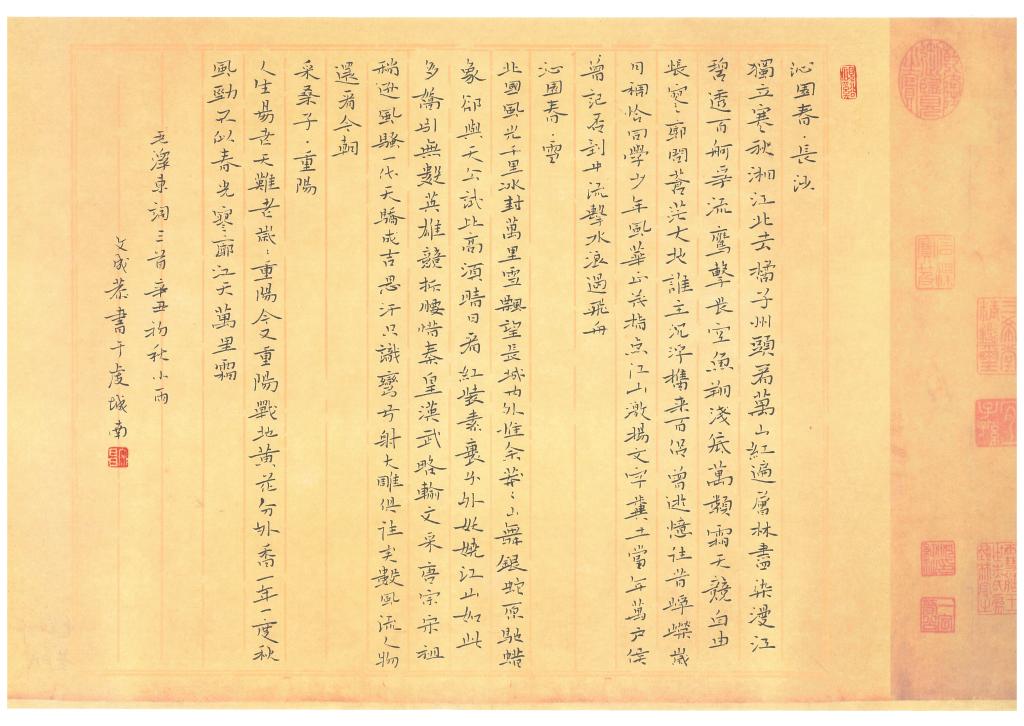 沁園春·長沙
獨立寒秋湘江北去橘子州頭看萬山紅遍層林盡染漫江
碧透百舸爭流鹰擊長空魚翔淺底萬類霜天競自由
悵寥廓問蒼茫大地誰主沉浮攜来百侣曾遊憶往昔崢嶸歲
月稠恰同學少年風華正茂指点江山激揚文字糞土當年萬户侯
曾記否到中流擊水浪遏飛舟
沁園春·雪
北國風光千里冰封萬里雪飄望長城内外惟余莽ヽ山舞銀蛇原馳蜡
象欲與天公試比高須晴日看紅裝素裹分外妖嬈江山如此
多嬌引無數英雄競折腰惜秦皇漢武略輸文采唐宗宋祖
稍遜風騷一代天驕成吉思汗只識彎弓射大雕俱往矣數風流人物
還看今朝
采桑子·重陽
人生易老天難老歲ヽ重陽今又重陽戰地黄花分外香一年一度秋
風勁不似春光寥廓江天萬里霜
毛澤東詞三首辛丑初秋小雨
文成恭書于虔城南